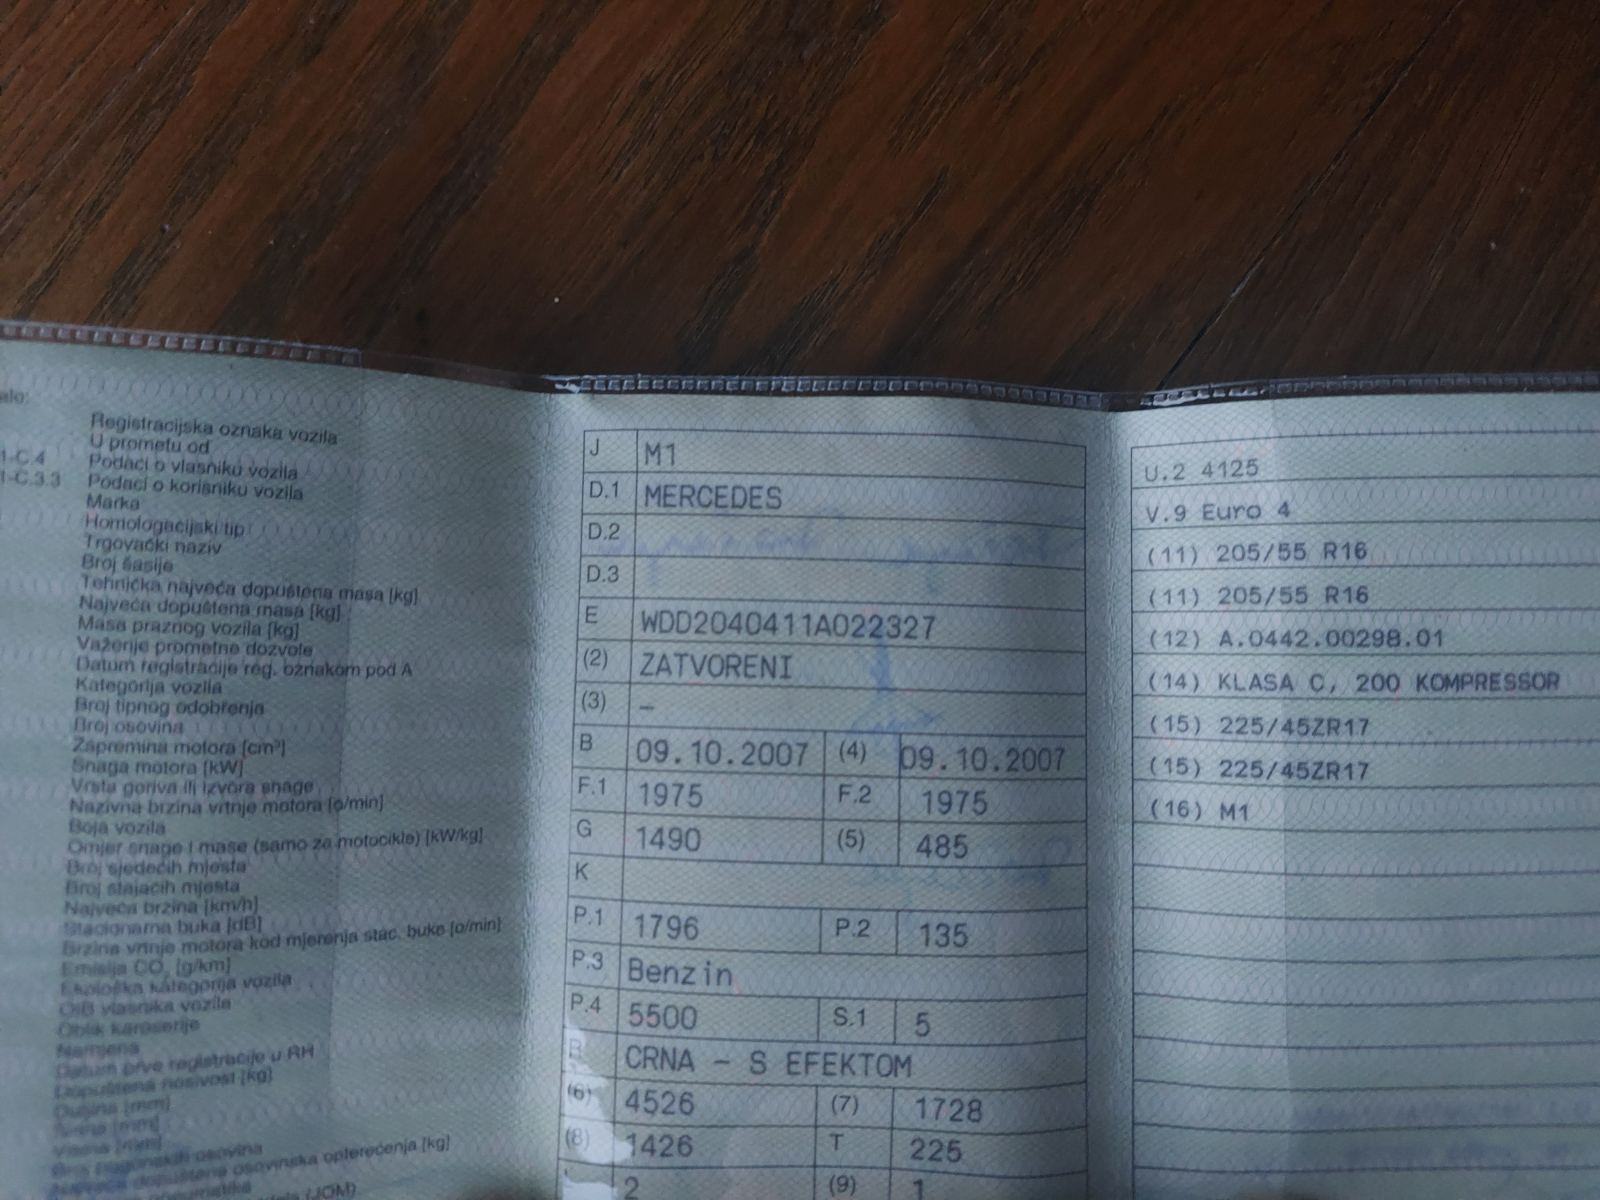 alo:
Registracijska oznaka vozila
U prometu od
1-C.4 Podaci o vlasniku vozila
1-C.3.3 Podaci o korisniku vozila
Marka
Homologacijski tip
Trgovački naziv
Broj šasije
Tehnička najveća dopuštena masa [kg]
Najveća dopuštena masa [kg]
Masa praznog vozila [kg]
Važenje prometne dozvole
Datum registracije reg. oznakom pod A
Kategorija vozila
Broj tipnog odobrenja
Broj osovina
Zapremina motora [cm³]
Snaga motora [kW]
Vrsta goriva ili izvora snage
Nazivna brzina vrtnje motora [o/min]
Boja vozila
Omjer snage i mase (samo za motocikle) [kW/kg]
Broj sjedećih mjesta
Broj stajaćih mjesta
Najveća brzina [km/h]
Stacionarna buka [dB]
Brzina vrtnje motora kod mjerenja stac. buke [o/min]
Emisija CO₂ [g/km]
Ekološka kategorija vozila
OIB vlasnika vozila
Oblik karoserije
Namjena
Datum prve registracije u RH
Dopuštena nosivost [kg]
Dužina [mm]
Širina [mm]
Visina [mm]
Broj pogonskih osovina
dopuštena osovinska opterećenja [kg]
pneumatika
J M1
D.1 MERCEDES
D.2
D.3
E WDD2040411A022327
(2) ZATVORENI
(3) –
B 09.10.2007 (4) 09.10.2007
F.1 1975 F.2 1975
G 1490 (5) 485
K
P.1 1796 P.2 135
P.3 Benzin
P.4 5500 S.1 5
R CRNA - S EFEKTOM
(6) 4526 (7) 1728
(8) 1426 T 225
2 (9) 1
U.2 4125
V.9 Euro 4
(11) 205/55 R16
(11) 205/55 R16
(12) A.0442.00298.01
(14) KLASA C, 200 KOMPRESSOR
(15) 225/45ZR17
(15) 225/45ZR17
(16) M1